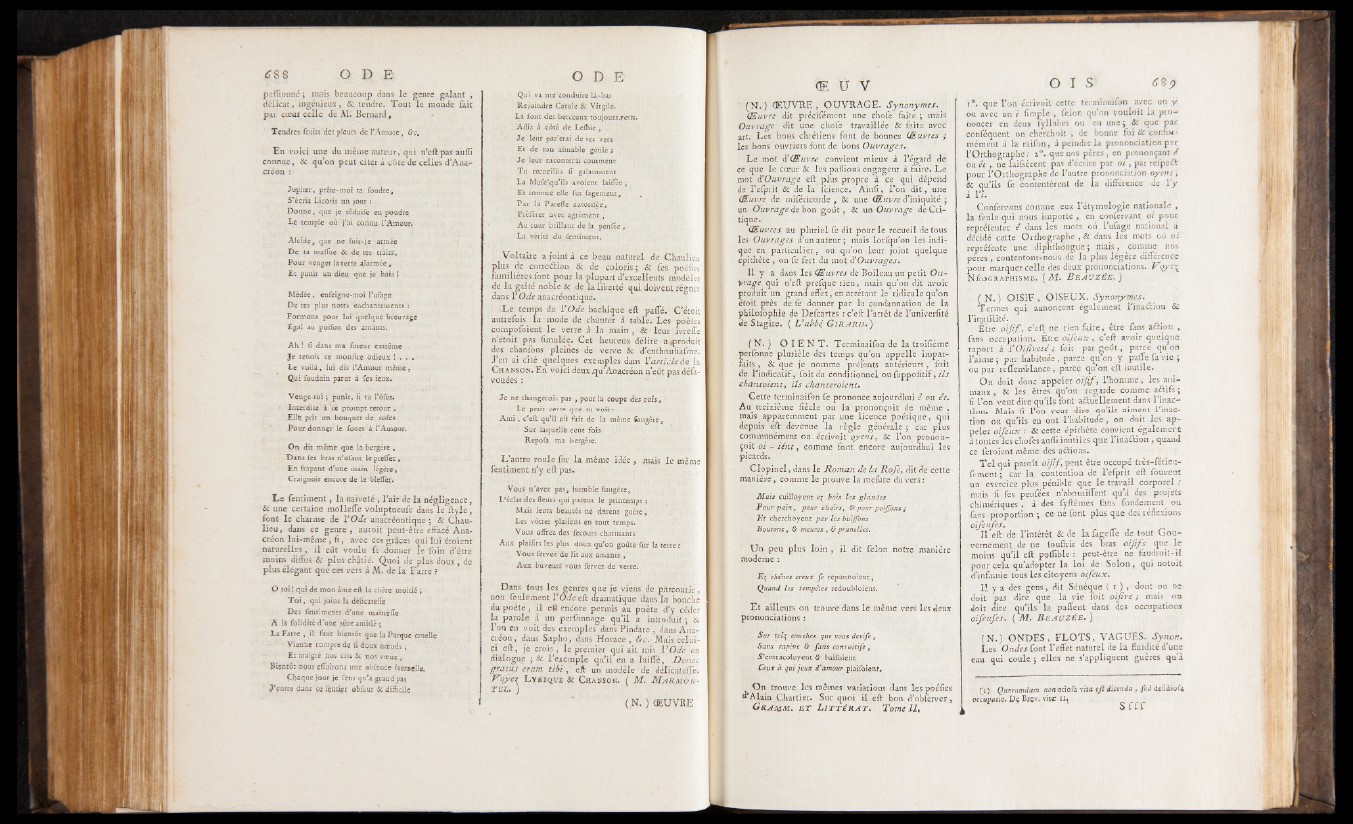 688 O D E
passionné ; mais beaucoup dans le genre galant ,
délicat, ingénieux, & tendre. Tout le monde sait
par cœur celle de M. Bernard,
Tendres fruits des pleurs de l'Aurore, &c.
En voici une du même auteur, qui n'est pas aussi
connue, & qu'on peut citer à côté de celles d'Ana-
créon :
Jupiter, prête-moi ta foudre,
S'écria Licoris un jour :
Donne, que je réduise en poudre
Le temple où j'ai connu l'Amour.
Alcide, que ne suis-je armée
De ta massue & de tes traits,
Pour venger la terre alarmée,
Et punir un dieu que je hais !
Médée, enseigne-moi l'usage
De tes plus noirs enchantements :
Formons pour lui quelque breuvage
Égal au poison des amants.
Ah ! si dans ma fureur extrême
Je tenois ce monstre odieux ! . . .
Le voilà, lui dit l'Amour même,
Qui soudain parut à ses ieux.
Venge-toi ; punis, si tu l'oses.
Interdite à ce prompt retour,
Elle prit un bouquet de roses
Pour donner le fouet à l'Amour.
On dit même que la bergère,
Dans ses bras n'osant le presser,
En frapant d'une main légère,
Craignoit encore de le blesser.
Le sentiment, la naïveté, l'air de la négligence,
& une certaine mollesse voluptueuse dans le style,
font le charme de l'Ode anacréontique ; & Chau-
lieu, dans ce genre, auroit peut-être effacé Ana-
créon lui-même, si, avec ces grâces qui lui étoient
naturelles, il eût voulu se donner le soin d'être
moins diffus & plus châtié. Quoi de plus doux, de
plus élégant que ces vers à M. de la Farre ?
O toi ! qui de mon âme est la chère moitié ;
Toi, qui joins la délicatesse
Des sentiments d'une maitresse
A la solidité d'une sûre amitié ;
La Farre, il faut bientôt que la Parque cruelle
Vienne rompre de si doux nœuds,
Et malgré nos cris & nos vœux,
Bientôt nous essuirons une absence éternelle.
Chaque jour je sens qu'à grand pas
J'entre dans ce sentier obscur & difficile
O D E
Qui va me conduire là-bas
Rejoindre Catule & Virgile.
Là sont des berceaux toujours verts.
Assis à côté de Lesbie,
Je leur parlerai de tes vers
Et de ton aimable génie ;
Je leur raconterai comment
Tu recueillis si galamment
La Muse qu'ils avoient laissée,
Et comme elle sut sagement,
Par la Paresse autorisée,
Préférer avec agrément,
Au tour brillant de la pensée,
La vérité du sentiment.
Voltaire a joint à ce beau naturel de Chaulieu
plus de correction & de coloris ; & ses poésies
familières sont pour la plupart d'excellents modèles
de la gaîté noble & de la liberté qui doivent régner
dans l'Ode anacréontique.
Le temps de l'Ode bachique est passé. C'étoit
autrefois la mode de chanter à table. Les poètes
composoient le verre à la main, & leur ivresse
n'étoit pas simulée. Cet heureux délire a produit
des chansons pleines de verve & d'enthousiasme.
J'en ai cité quelques exemples dans l'article de la
CHANSON. En voici deux qu'Anacréon n'eût pas désa-
vouées :
Je ne changerois pas, pour la coupe des rois,
Le petit verre que tu vois :
Ami, c'est qu'il est fait de la même fougère,
Sur laquelle cent fois
Reposa ma bergère.
L'autre roule sur la même idée, mais le même
sentiment n'y est pas.
Vous n'avez pas, humble fougère,
L'éclat des fleurs qui parent le printemps ;
Mais leurs beautés ne durent guère,
Les vôtres plaisent en tout temps.
Vous offrez des secours charmants
Aux plaisirs les plus doux qu'on goûte sur la terre :
Vous servez de lit aux amants,
Aux buveurs vous servez de verre.
Dans tous les genres que je viens de parcourir,
non seulement l'Ode est dramatique dans la bouche
du poète, il est encore permis au poète d'y céder
la parole à un personnage qu'il a introduit ; &
l'on en voit des exemples dans Pindare, dans Ana-
créon, dans Sapho, dans Horace, &c. Mais celui-
ci est, je crois, le premier qui ait mis l'Ode en
dialogue ; & l'exemple qu'il en a laissé, Donec
gratus eram tibi, est un modèle de délicatesse.
Voyez LYRIQUE & CHANSON. ( M. MARMON-
TEL. )
(N. ) ŒUVRE
Œ U V
(N.) ŒUVRE, OUVRAGE. Synonymes.
Œuvre dit précisément une chose faite ; mais
Ouvrage dit une chose travaillée & faite avec
art. Les bons chrétiens font de bonnes Œuvres ;
les bons ouvriers font de bons Ouvrages.
Le mot d'Œuvre convient mieux à l'égard de
ce que le cœur & les passions engagent à faire. Le
mot d'Ouvrage est plus propre à ce qui dépend
de l'esprit & de la science. Ainsi, l'on dit, une
Œuvre de miséricorde, & une Œuvre d'iniquité ;
un Ouvrage de bon goût, & un Ouvrage de Cri-
tique.
Œuvres au pluriel se dit pour le recueil de tous
les Ouvrages d'un auteur ; mais lorsqu'on les indi-
que en particulier, ou qu'on leur joint quelque
épithète, on se sert du mot d'Ouvrages.
Il y a dans les Œuvres de Boileau un petit Ou-
vrage qui n'est presque rien, mais qu'on dit avoir
produit un grand effet, en arrêtant le ridicule qu'on
étoit près de se donner par la condannation de la
philosophie de Descartes : c'est l'arrêt de l'université
de Stagire. ( L'abbé GIRARD. )
(N.) OIENT. Terminaison de la troisième
personne plurièle des temps qu'on appelle impar-
faits, & que je nomme présents antérieurs, soit
de l'indicatif, soit du conditionnel ou suppositif, ils
chantoient, ils chanteroient.
Cette terminaison se prononce aujourdhui è ou ée.
Au treizième siècle on la prononçoit de même,
mais apparemment par une licence poétique, qui
depuis est devenue la règle générale ; car plus
communément on écrivoit oyent, & l'on pronon-
çoit oi - ient, comme font encore aujourdhui les
picards.
Clopinel, dans le Roman de la Rose, dit de cette
manière, comme le prouve la mesure du vers :
Mais cuilloyent ez bois les glandes
Pour pain, pour chairs, & pour poissons ;
Et cherchoyent par les buissons
Boutons, & meures, & prunelles.
Un peu plus loin, il dit selon notre manière
moderne :
Ez chênes creux se reponnoient,
Quand les tempêtes redoubloient.
Et ailleurs on trouve dans le même vers les deux
prononciations :
Sur telz couches que vous devise,
Sans rapine & sans convoitise,
S'entracoloyent & baisoient
Ceux à qui jeux d'amour plaisoient.
On trouve les mêmes variations dans les poésies
d'Alain Chartier. Sur quoi il est bon d'observer,
GRAMM. ET LITTÉRAT. Tome II.
O I S 689
1°. que l'on écrivoit cette terminaison avec un y
ou avec un i simple, selon qu'on vouloit la pro-
noncer en deux syllabes ou en une ; & que par
conséquent on cherchoit, de bonne foi & confor-
mément à la raison, à peindre la prononciation par
l'Orthographe : 2°. que nos pères, en prononçant è
ou ée, ne laissèrent pas d'écrire par oi, par respect
pour l'Orthographe de l'autre prononciation oyent,
& qu'ils se contentèrent de la différence de l'y
à l'i.
Conservons comme eux l'étymologie nationale,
la seule qui nous importe, en conservant oi pour
représenter è dans les mots où l'usage national a
décidé cette Orthographe, & dans les mots où oi
représente une diphthongue ; mais, comme nos
pères, contentons-nous de la plus légère différence
pour marquer celle des deux prononciations. Voyez
NÉOGRAPHISME. ( M. BEAUZÉE. )
(N.) OISIF, OISEUX. Synonymes.
Termes qui annoncent également l'inaction &
l'inutilité.
Être oisif, c'est ne rien faire, être sans action,
sans occupation. Être oiseux, c'est avoir quelque
raport à l'Oisiveté ; soit par goût, parce qu'on
l'aime ; par habitude, parce qu'on y passe sa vie ;
ou par ressemblance, parce qu'on est inutile.
On doit donc appeler oisif, l'homme, les ani-
maux, & les êtres qu'on regarde comme actifs ;
si l'on veut dire qu'ils sont actuellement dans l'inac-
tion. Mais si l'on veut dire qu'ils aiment l'inac-
tion ou qu'ils en ont l'habitude, on doit les ap-
peler oiseux : & cette épithète convient également
à toutes les choses aussi inutiles que l'inaction, quand
ce seroient même des actions.
Tel qui paroît oisif, peut être occupé très-sérieu-
sement ; car la contention de l'esprit est souvent
un exercice plus pénible que le travail corporel :
mais si ses pensées n'aboutissent qu'à des projets
chimériques, à des systêmes sans fondement ou
sans proportion ; ce ne sont plus que des réflexions
oiseuses.
Il est de l'intérêt & de la sagesse de tout Gou-
vernement de ne souffrir des bras oisifs que le
moins qu'il est possible : peut-être ne faudroit-il
pour cela qu'adopter la loi de Solon, qui notoit
d'infamie tous les citoyens oiseux.
Il y a des gens, dit Sénèque ( 1 ), dont on ne
doit pas dire que la vie soit oisive ; mais on
doit dire qu'ils la passent dans des occupations
oiseuses. ( M. BEAUZÉE. )
(N.) ONDES, FLOTS, VAGUES. Synon.
Les Ondes sont l'effet naturel de la fluidité d'une
eau qui coule ; elles ne s'appliquent guères qu'à
(1) Quorumdam non otiosa vita est dicenda, sed desidiosa
occupatio. De Brev. vitæ II.
S f f f